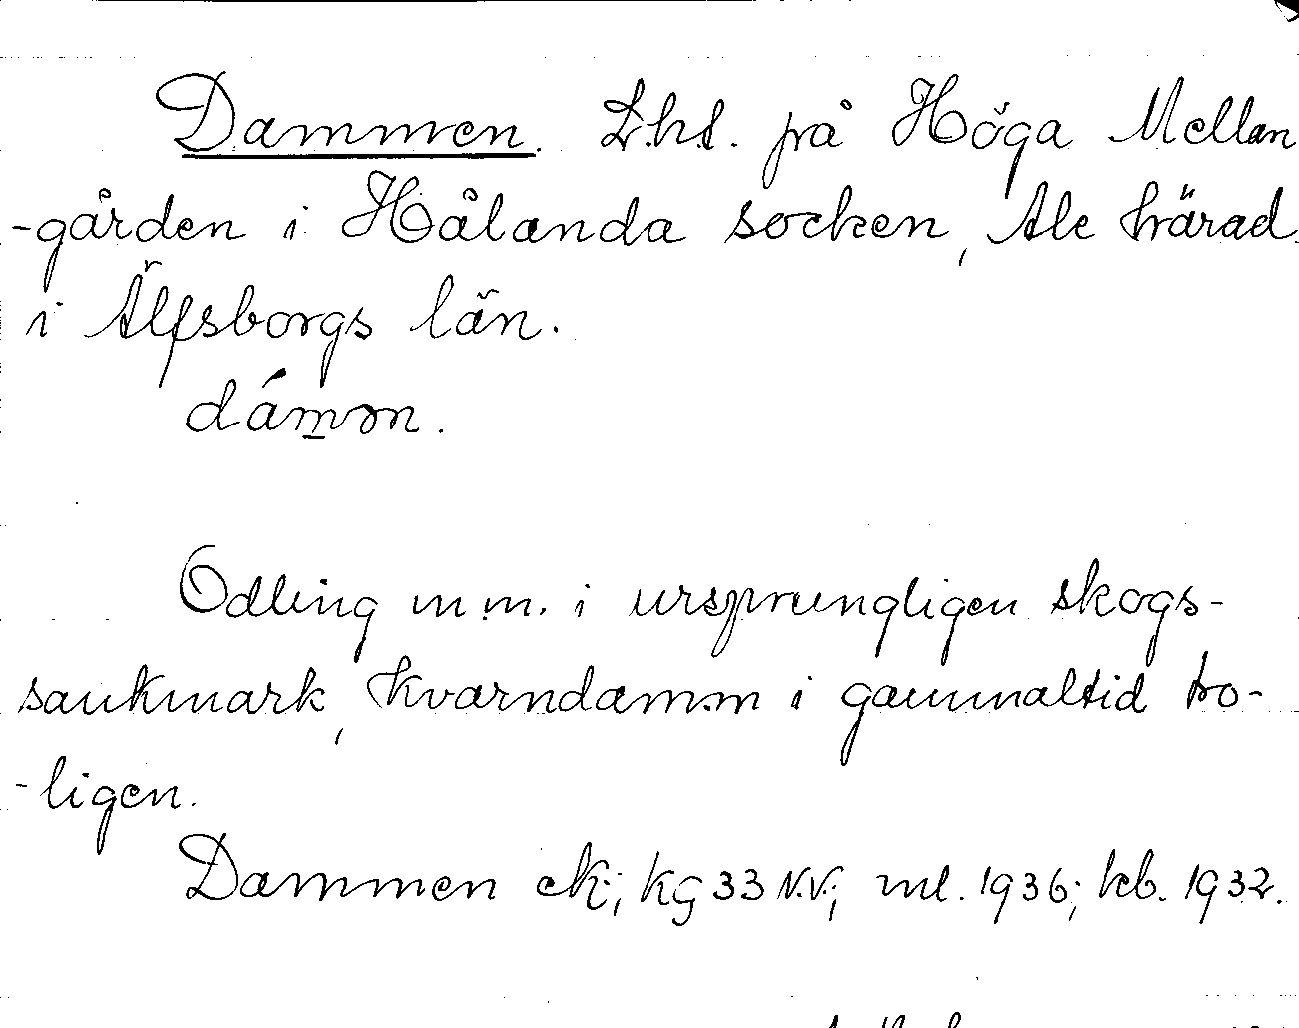 Dammen. L.h.l. på Höga Mellan
-gården i Hålanda socken, Ale härad
i Älfsborgs län.
dám̲ən.
Odling m.m. i ursprungligen skogs-
sankmark, kvarndamm i gammaltid tro-
-ligen.
Dammen ek; kg 33 N.V; ml. 1936; kb. 1932.